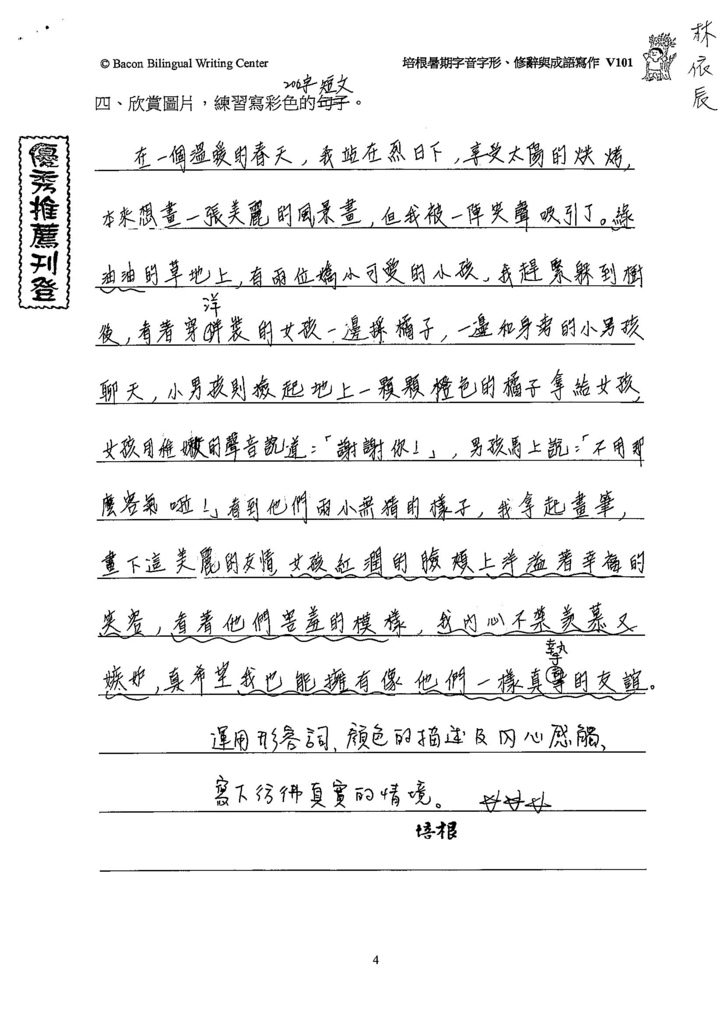 © Bacon Bilingual Writing Center
培根暑期字音字形、修辭與成語寫作 V101
林依辰
200字短文
四、欣賞圖片，練習寫彩色的句子。
優秀推薦刊登
在一個溫暖的春天，我站在烈日下，享受太陽的烘烤，
本來想畫一張美麗的風景畫，但我被一陣笑聲吸引了。綠
油油的草地上，有兩位嬌小可愛的小孩，我趕緊躲到樹
洋
後，看著穿裝的女孩一邊採橘子，一邊和身旁的小男孩
聊天，小男孩則撿起地上一顆顆橙色的橘子拿給女孩，
女孩用稚嫩的聲音說道：「謝謝你！」，男孩馬上說：「不用那
麼客氣啦！」看到他們兩小無猜的樣子，我拿起畫筆，
畫下這美麗的友情，女孩紅潤的臉頰上洋溢著幸福的
笑容，看著他們害羞的模樣，我內心不禁羨慕又
摯
嫉妒，真希望我也能擁有像他們一樣真的友誼。
運用形容詞、顏色的描述及內心感觸，
寫下彷彿真實的情境。☆☆☆
培根
4